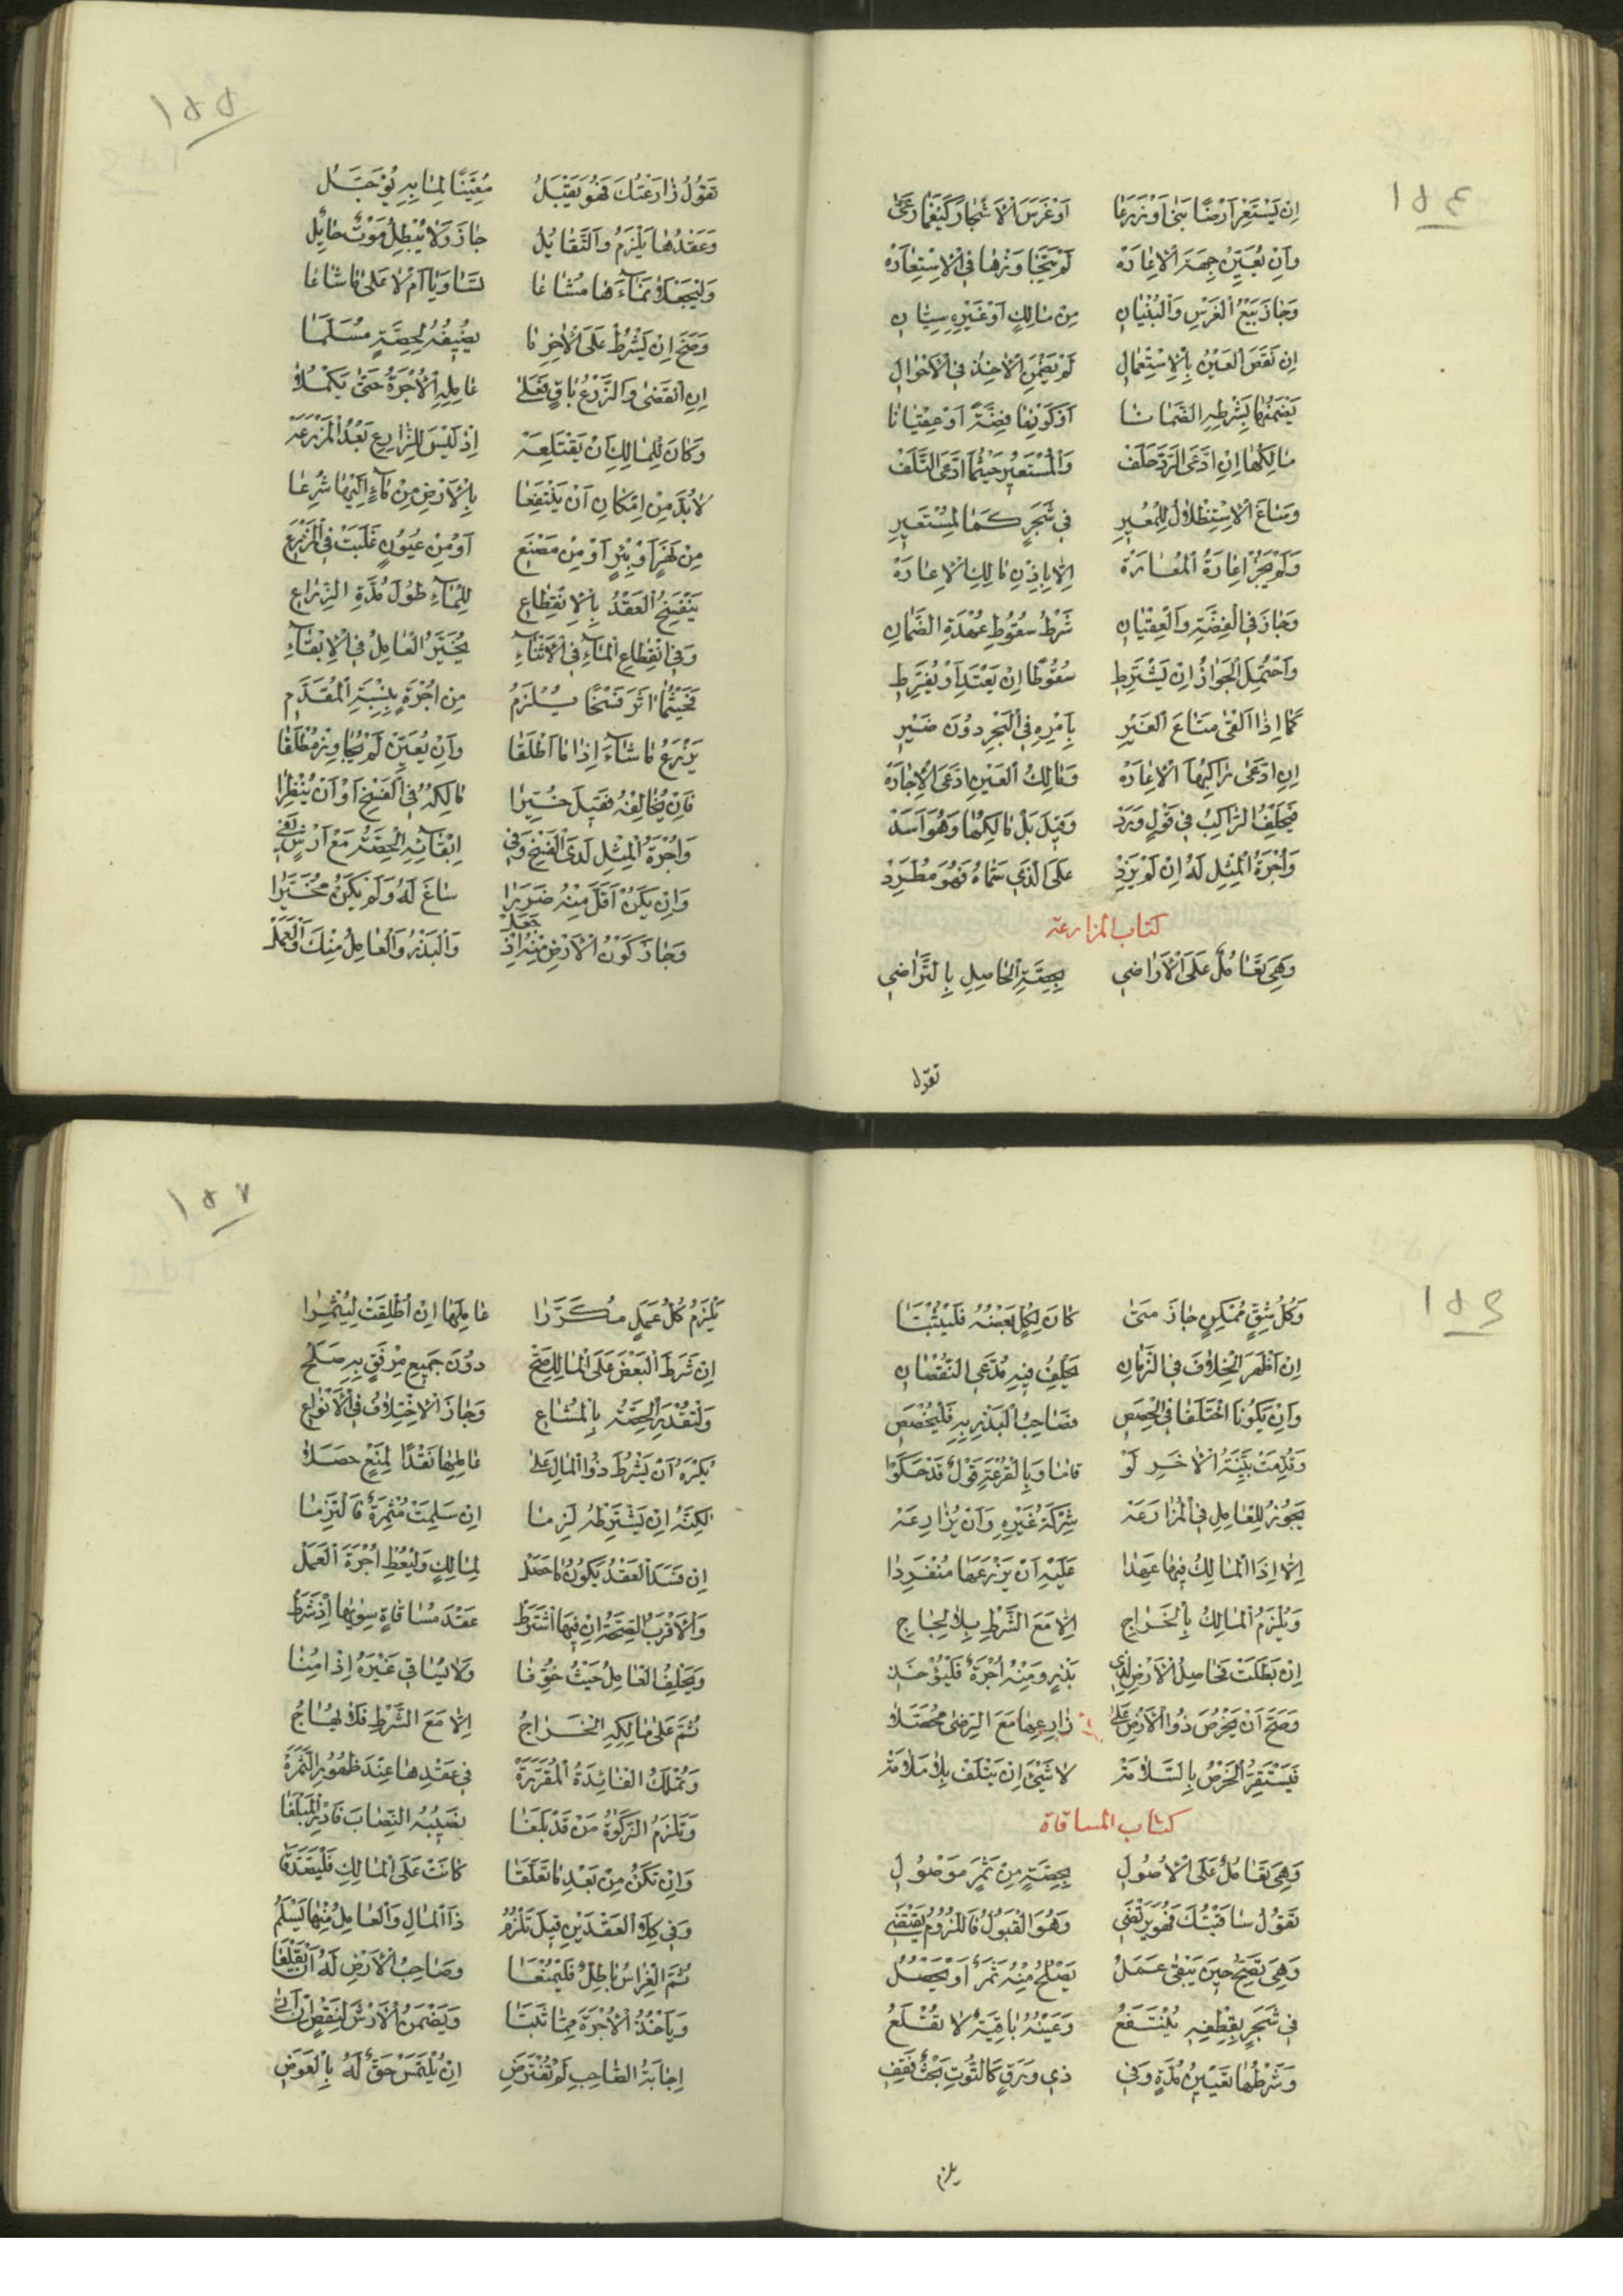 ١٥٤
اِنْ يَسْتَعِرْ اَرْضًا بَنٰى اَوْ زَرَعَا اَوْ غَرَسَ الْاَشْجَارَ كَيْفَمَا رَعٰى
وَاِنْ يُعَيِّنْ جِهَةَ الْاِعَارَهْ لَمْ يَتَجَاوَزْهَا فِي الْاِسْتِعَارَهْ
وَجَازَ بَيْعُ الْغَرْسِ وَالْبُنْيَانِ مِنْ مَالِكٍ اَوْ غَيْرِهِ سِيَّانِ
اِنْ نَقَصَ الْعَيْنُ بِالْاِسْتِعْمَالِ لَمْ يَضْمَنِ الْاٰخِذُ فِي الْاَحْوَالِ
يَضْمَنُهَا بِشَرْطِهِ الضَّمَانَا اَوْ كَوْنِهَا فِضَّةً اَوْ عِقْيَانَا
مَالِكُهَا اِنِ ادَّعَى الرَّدَّ حَلَفْ وَالْمُسْتَعِيرُ حَيْثُمَا ادَّعَى التَّلَفْ
وَسَاغَ الْاِسْتِظْلَالُ لِلْمُعِيرِ فِي شَجَرٍ كَمَا لِمُسْتَعِيرِ
وَلَمْ يَجُزْ اِعَارَةُ الْمُعَارَهْ اِلَّا بِاِذْنِ مَالِكِ الْاِعَارَهْ
وَجَازَ فِي الْفِضَّةِ وَالْعِقْيَانِ شَرْطُ سُقُوطِ عُهْدَةِ الضَّمَانِ
وَاحْتُمِلَ الْجَوَازُ اِنْ يَشْتَرِطِ سُقُوطًا اِنْ يَعْتَدِ اَوْ يُفَرِّطِ
كَمَا اِذَا اَلْقٰى مَتَاعَ الْغَيْرِ بِاَمْرِهِ فِي الْبَحْرِ دُونَ ضَيْرِ
اِنِ ادَّعٰى رَاكِبُهَا الْاِعَارَهْ وَمَالِكُ الْعَيْنِ ادَّعَى الْاِجَارَهْ
فَيَحْلِفُ الرَّاكِبُ فِي قَوْلٍ وَرَدْ وَقِيلَ بَلْ مَالِكُهَا وَهُوَ اَسَدْ
وَاُجْرَةُ الْمِثْلِ لَهُ اِنْ لَمْ يَزِدْ عَلَى الَّذِي سَمَّاهُ فَهُوَ مُطَّرِدْ
كتاب المزارعة
وَهِيَ تَعَامُلٌ عَلَى الْاَرَاضِي بِحِصَّةِ الْحَاصِلِ بِالتَّرَاضِي
تقول
١٥٥
تَقُولُ زَارَعْتُكَ فَهُوَ يَقْبَلُ مُعَيِّنًا لِمَا بِهِ يُؤَجَّلُ
وَعَقْدُهَا يَلْزَمُ وَالتَّقَايُلُ جَازَ وَلَا يُبْطِلُ مَوْتٌ حَائِلُ
وَلْيَجْعَلَا نَمَاءَهَا مُشَاعَا تَسَاوَيَا اَمْ لَا عَلٰى مَا شَاعَا
وَصَحَّ اِنْ يَشْرُطْ عَلَى الْاٰخِرِ مَا يُضِيفُهُ لِحِصَّةٍ مُسَلَّمَا
اِنِ انْقَضٰى وَالزَّرْعُ بَاقٍ فَعَلٰى عَامِلِهِ الْاُجْرَةُ حَتّٰى يَكْمُلَا
وَكَانَ لِلْمَالِكِ اَنْ يَقْتَلِعَهْ اِذْ لَيْسَ لِلزَّارِعِ بَعْدُ الْمَزْرَعَهْ
لَابُدَّ مِنْ اِمْكَانِ اَنْ يَنْتَفِعَا بِالْاَرْضِ مِنْ مَاءٍ اِلَيْهَا شُرِعَا
مِنْ نَهَرٍ اَوْ بِئْرٍ اَوْ مِنْ مَصْنَعِ اَوْ مِنْ عُيُونٍ غَلَبَتْ فِي الْمَزْرَعِ
يَنْفَسِخُ الْعَقْدُ بِالْاِنْقِطَاعِ لِلْمَاءِ طُولَ مُدَّةِ الزِّرَاعِ
وَفِي انْقِطَاعِ الْمَاءِ فِي الْاَثْنَاءِ يُخَيَّرُ الْعَامِلُ فِي الْاِبْقَاءِ
فَحَيْثُمَا اٰثَرَ فَسْخًا يُلْزَمُ مِنْ اُجْرَةٍ بِنِسْبَةِ الْمُقَدَّمِ
يَزْرَعُ مَا شَاءَ اِذَا مَا اَطْلَقَا وَاِنْ يُعَيِّنْ لَمْ يُجَاوِزْ مُطْلَقَا
فَاِنْ يُخَالِفْهُ فَقِيلَ خُيِّرَا مَالِكُهُ فِي الْفَسْخِ اَوْ اَنْ يُنْظِرَا
وَاُجْرَةُ الْمِثْلِ لَدَى الْفَسْخِ وَفِي اِبْقَائِهِ الْحِصَّةُ مَعْ اَرْشٍ
وَاِنْ يَكُنْ اَقَلَّ مِنْهُ ضَرَرَا سَاغَ لَهُ وَلَمْ يَكُنْ مُخَيَّرَا
وَجَازَ كَوْنُ الْاَرْضِ مِنْهُ اِذْ جَعَلْ وَالْبَذْرُ وَالْعَامِلُ مِنْكَ وَالْعَمَلْ
١٥٦
وَكُلُّ شِقٍّ مُمْكِنٍ جَازَ مَتٰى كَانَ لِكُلٍّ بَعْضُهُ فَلْيَثْبُتَا
اِنْ اَظْهَرَ الْخِلَافَ فِي الزَّمَانِ يَحْلِفُ فِيهِ مُدَّعِي النُّقْصَانِ
وَاِنْ يَكُونَا اخْتَلَفَا فِي الْحِصَصِ فَصَاحِبُ الْبَذْرِ بِهِ فَلْيُخْصَصِ
وَقُدِّمَتْ بَيِّنَةُ الْاٰخَرِ لَوْ قَامَا وَبِالْقُرْعَةِ قَوْلٌ قَدْ حَكَوْا
يَجُوزُ لِلْعَامِلِ فِي الْمُزَارَعَهْ شِرْكَةُ غَيْرِهِ وَاَنْ يُزَارِعَهْ
اِلَّا اِذَا الْمَالِكُ فِيهَا عَهِدَا عَلَيْهِ اَنْ يَزْرَعَهَا مُنْفَرِدَا
وَيُلْزَمُ الْمَالِكُ بِالْخَرَاجِ اِلَّا مَعَ الشَّرْطِ بِلَا لِحَاجِ
اِنْ بَطَلَتْ فَحَاصِلُ الْاَرْضِ لِذِي بَذْرٍ وَمِنْهُ اُجْرَةٌ فَلْيُؤْخَذِ
وَصَحَّ اَنْ يَخْرُصَ ذُو الْاَرْضِ عَلٰى زَارِعِهَا مَعَ الرِّضٰى مُحَصَّلَا
فَيَسْتَقِرُّ الْخَرْصُ بِالسَّلَامَهْ لَا شَيْئَ اِنْ يَتْلَفْ بِلَا مَلَامَهْ
كتاب المساقاة
وَهِيَ تَعَامُلٌ عَلَى الْاُصُولِ بِحِصَّةٍ مِنْ ثَمَرٍ مَوْصُولِ
تَقُولُ سَاقَيْتُكَ فَهُوَ يَرْتَضِي وَهُوَ الْقَبُولُ فَاللُّزُومُ يَقْتَضِي
وَهِيَ تَصِحُّ حِينَ يَبْقٰى عَمَلُ يَصْلُحُ مِنْهُ ثَمَرٌ اَوْ يَحْصُلُ
فِي شَجَرٍ بِقِطْفِهِ يُنْتَفَعُ وَعَيْنُهُ بَاقِيَةٌ لَا تُقْلَعُ
وَشَرْطُهَا تَعْيِينُ مُدَّةٍ وَفِي ذِي وَرَقٍ كَالتُّوتِ بَحْثٌ فَقِفِ
يلزم
١٥٧
يَلْزَمُ كُلُّ عَمَلٍ مُكَرَّرَا عَامِلَهَا اِنْ اُطْلِقَتْ لِيُثْمِرَا
اِنْ شَرَطَ الْبَعْضَ عَلَى الْمَالِكِ صَحْ دُونَ جَمِيعٍ مِرْفَقٍ بِهِ صَلَحْ
وَلْتُقْدَرِ الْحِصَّةُ بِالْمُشَاعِ وَجَازَ الْاِخْتِلَافُ فِي الْاَنْوَاعِ
يُكْرَهُ اَنْ يَشْرُطَ ذُو الْمَالِ عَلٰى عَامِلِهَا نَقْدًا لِمَنْعٍ حَصَلَا
لٰكِنَّهُ اِنْ يَشْتَرِطْهُ لَزِمَا اِنْ سَلِمَتْ مُثْمِرَةٌ فَالْتَزِمَا
اِنْ فَسَدَ الْعَقْدُ يَكُونُ مَا حَصَلْ لِمَالِكٍ وَلْيُعْطِ اُجْرَةَ الْعَمَلْ
وَالْاَقْرَبُ الصِّحَّةُ اِنْ فِيهَا اشْتَرَطْ عَقْدَ مُسَاقَاةٍ سِوٰيهَا اِذْ شَرَطْ
وَيَحْلِفُ الْعَامِلُ حَيْثُ خُوِّفَا وَلَا يُسَاقِي غَيْرَهُ اِذَا
ثُمَّ عَلٰى مَالِكِهِ الْخَرَاجُ اِلَّا مَعَ الشَّرْطِ فَلَا
وَتُمْلَكُ الْفَائِدَةُ الْمُقَرَّرَهْ فِي عَقْدِهَا عِنْدَ ظُهُورِ الثَّمَرَهْ
وَتَلْزَمُ الزَّكٰوةُ مَنْ قَدْ بَلَغَا نَصِيبُهُ النِّصَابَ فَادْرِ الْمَبْلَغَا
وَاِنْ تَكُنْ مِنْ بَعْدِ مَا تَعَلَّقَا كَانَتْ عَلَى الْمَالِكِ
وَفِي كِلَا الْعَقْدَيْنِ قِيلَ تَلْزَمُ ذَا الْمَالِ وَالْعَامِلُ مِنْهَا يَسْلَمُ
ثُمَّ الْغِرَاسُ بَاطِلٌ فَلْيُمْنَعَا وَصَاحِبُ الْاَرْضِ لَهُ اَنْ يَقْلَعَا
وَيَأْخُذُ الْاُجْرَةَ مِمَّا ثَبَتَا وَيَضْمَنُ الْاَرْشَ لِنَقْصٍ
اِجَابَةُ الصَّاحِبِ لَمْ تُفْتَرَضِ اِنْ يُلْتَمَسْ حَقٌّ لَهُ بِالْعَوَضِ